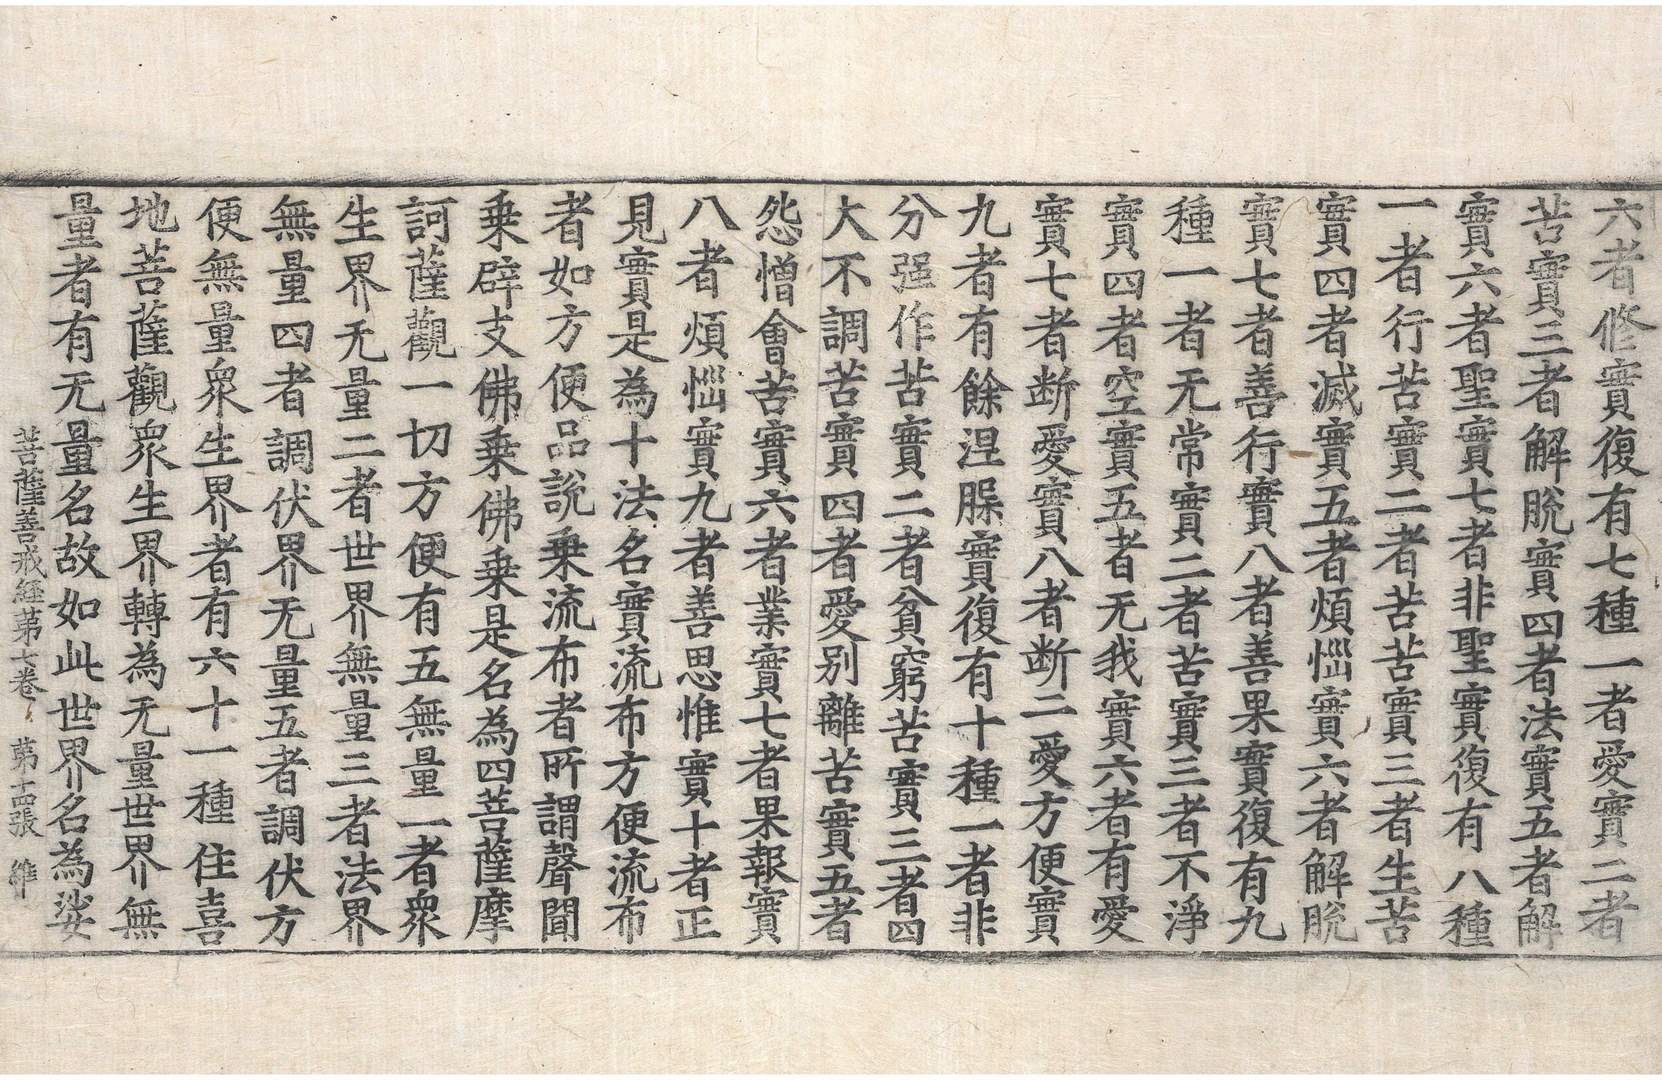 六者修實復有七種一者愛實二者
苦實三者解脫實四者法實五者解
實六者聖實七者非聖實復有八種
一者行苦實二者苦苦實三者生苦
實四者滅實五者煩惱實六者解脫
實七者善行實八者善果實復有九
種一者无常實二者苦實三者不淨
實四者空實五者无我實六者有愛
實七者断愛實八者断二愛方便實
九者有餘涅槃實復有十種一者非
分强作苦實二者貧窮苦實三者四
大不調苦實四者愛別離苦實五者
怨憎會苦實六者業實七者果報實
八者煩惱實九者善思惟實十者正
見實是為十法名實流布方便流布
者如方便品說乗流布者所謂聲聞
乗辟支佛乗佛乗是名為四菩薩摩
訶薩觀一切方便有五無量一者衆
生界无量二者世界無量三者法界
無量四者調伏界无量五者調伏方
便無量衆生界者有六十一種住喜
地菩薩觀衆生界轉為无量世界無
量者有无量名故如此世界名為娑
菩薩善戒經苐七卷 苐十四張 維